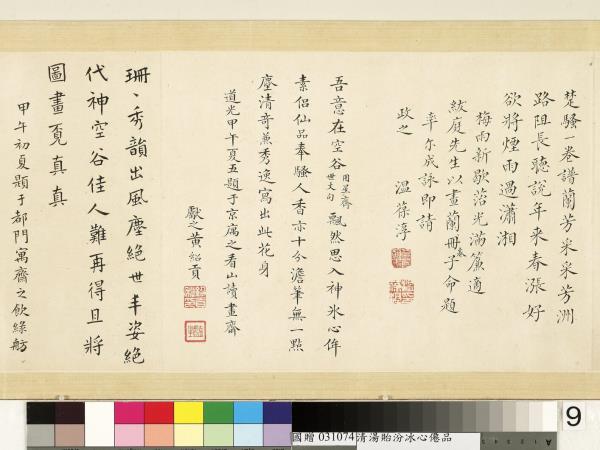 楚騷一卷譜蘭芳采采芳洲
路阻長聽說年来春漲好
欲將煙雨過瀟湘
梅雨新歇落光滿簾適
紱庭先生以畫蘭冊索子命題
率尔成詠即請
政之
温葆淳
吾意在空谷用星齋世丈句飄然思入神氷心侔
素侶仙品奉騷人香亦十分澹筆無一點
塵清奇兼秀逸寫出此花身
道光甲午夏五題于京寓之看山讀畫齋
獻之黄紹貢
珊〻秀韻出風塵絕世丰姿絕
代神空谷佳人難再得且將
圖畫覓真真
甲午初夏題于都門寓齋之飲綠舫
9
國贈 031074 清湯貽汾冰心倦品